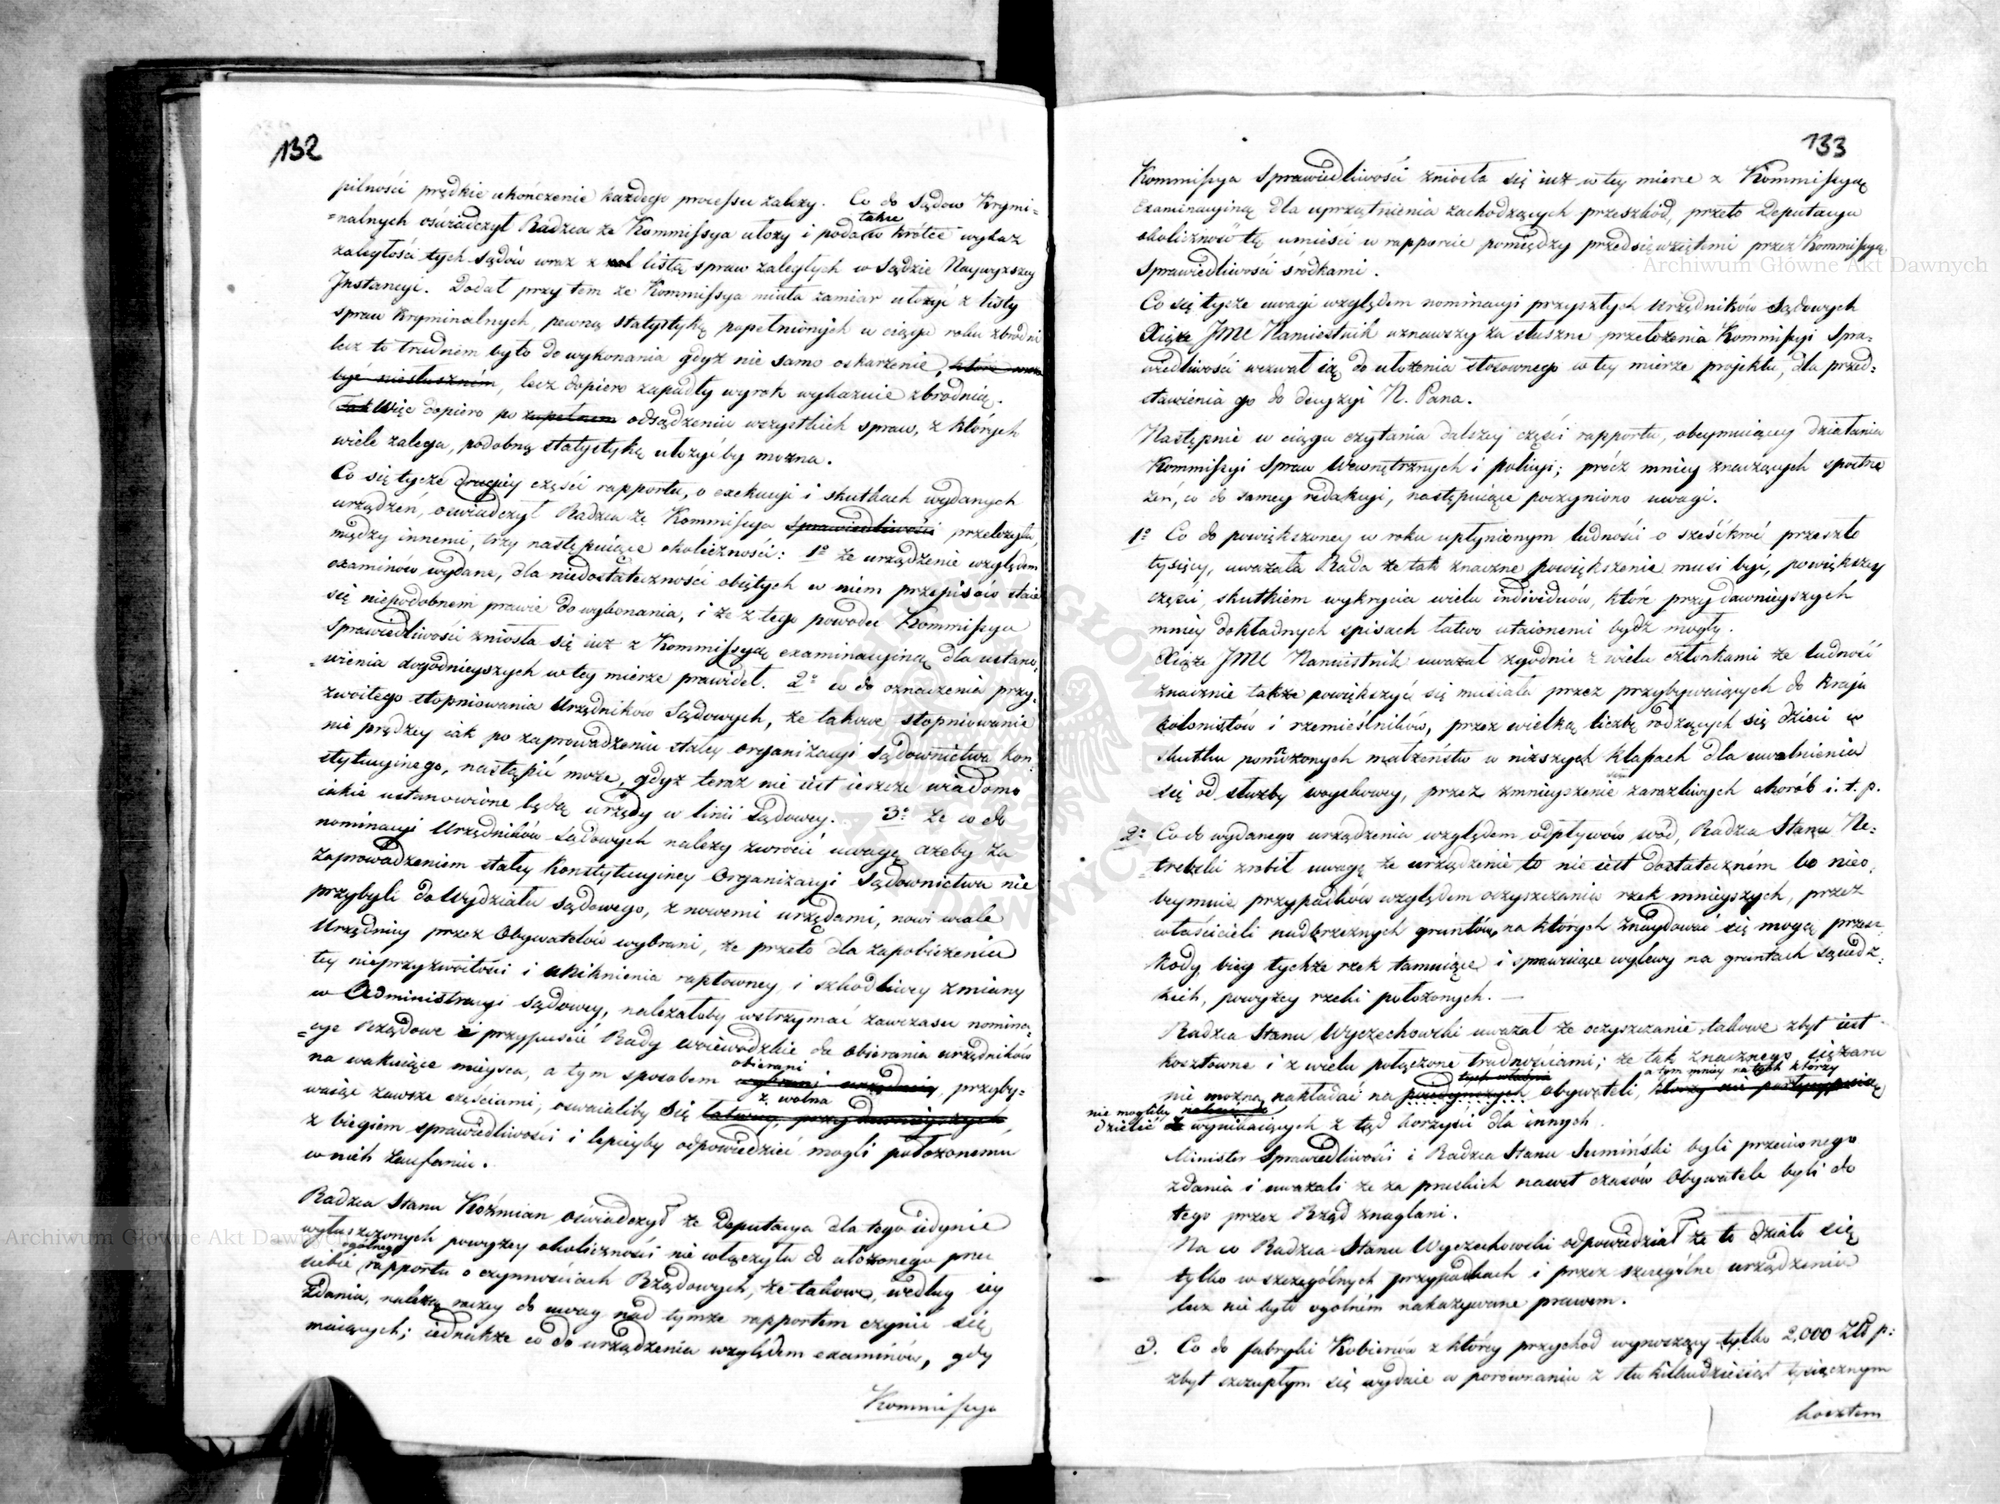 132
pilności prędkie ukończenie każdego processu zależy. Co do Sądow Krymi=
=nalnych oświadczył Radzca że Kommissya ułoży i poda także w krótce wykaz
zaległości tych Sądów wraz z listą spraw zaległych w Sądzie Naywyższey
Instancyi. Dodał przy tem że Kommissya miała zamiar ułożyć z listy
spraw Kryminalnych, pewną statystykę popełnionych w ciągu roku zbrodni
lecz to trudnem było do wykonania gdyż nie samo oskarżenie, które może
być niesłusznem, lecz dopiero zapadły wyrok wykazuie zbrodnią.
Tak Więc dopiero po zupełnem odsądzeniu wszystkich spraw, z których
wiele zalega, podobną statystykę ułożyć by można.
Co się tycze drugiey części rapportu, o exekucyi i skutkach wydanych
urządzeń, oświadczył Radzca że Kommissya Sprawiedliwości przełożyła,
między innemi, trzy następuiące okoliczności: 1º że urządzenie względem
examinów wydane, dla niedostateczności obiętych w niem przepisów staie
się niepodobnem prawie do wykonania, i że z tego powodu Kommissya
Sprawiedliwości zniosła się iuż z Kommissyą examinacyiną dla ustano=
=wienia dogodnieyszych w tey mierze prawideł. 2º co do oznaczenia przy=
zwoitego stopniowania Urzędników Sądowych, że takowe stopniowanie
nie prędzey iak po zaprowadzeniu stałey organizacyi Sądownictwa kon=
stytucyinego, nastąpić może, gdyż teraz nie iest ieszcze wiadomo
iakie ustanowione będą urzędy w linii Sądowey. 3º że co do
nominacyi Urzędników Sądowych należy zwrócić uwagę ażeby za
zaprowadzeniem stałey Konstytucyiney Organizacyi Sądownictwa nie
przybyli do Wydziału Sądowego, z nowemi urzędami, nowi wcale
Urzędnicy przez Obywatelów wybrani, że przeto dla zapobieżenia
tey nieprzyzwoitości i uniknienia raptowney i szkodliwey zmiany
w Administracyi Sądowey, należałoby wstrzymać zawczasu nomina=
=cye Rządowe i przypuścić Rady Woiewódzkie do obierania urzędników
na wakuiące mieysca, a tym sposobem
obierani
wybrani urzędnicy, przyby=
waiąc zawsze częściami, oswaialiby się
z wolna
łatwiey, przy dawnieyszych,
z biegiem sprawiedliwości i lepieyby odpowiedzieć mogli położonemu
w nich zaufaniu.
Radzca Stanu Koźmian oświadczył że Deputacya dla tego iedynie
wyłuszczonych powyżey okoliczności nie włączyła do ułożonego przez
siebie ogólnego rapportu o czynnościach Rządowych, że takowe, według iey
zdania, należą raczey do uwag nad tymże rapportem czynić się
maiących; iednakże co do urządzenia względem examinów, gdy
Kommissya
133
Kommissya Sprawiedliwości zniosła się iuż w tey mierze z Kommissyą
Examinacyiną dla uprzątnienia zachodzących przeszkód, przeto Deputacya
okoliczność tę umieści w rapporcie pomiędzy przedsięwziętemi przez Kommissyą
Sprawiedliwości śródkami.
Co się tycze uwagi względem nominacyi przyszłych Urzędników Sądowych
Xiąże JMC Namiestnik uznawszy za słuszne przełożenia Kommissyi Spra=
wiedliwości wezwał ią do ułożenia stosownego w tey mierze projektu, dla przed=
stawienia go do decyzyi N. Pana.
Następnie w ciągu czytania dalszey części rapportu, obeymuiącey działania
Kommissyi Spraw Wewnętrznych i policyi; prócz mniey znaczących spostrze
żeń, co do samey redakcyi, następuiące poczyniono uwagi.
1º Co do powiększoney w roku upłynionym ludności o sześćkroć przeszło
tysięcy, uważała Rada że tak znaczne powiększenie musi być, powiększey
części, skutkiem wykrycia wielu individuów, które przy dawnieyszych
mniey dokładnych spisach łatwo utaionemi bydź mogły.
Xiąże JMC Namiestnik uważał zgodnie z wielu członkami że ludność
znacznie także powiększyć się musiała przez przybywaiących do Kraju
kolonistów i rzemieślników, przez wielką liczbę rodzących się dzieci w
skutku pomnożonych małżeństw w niższych klassach dla uwolnienia
się od służby woyskowey, przez zmnieyszenie zaraźliwych chorób i. t. p.
2º Co do wydanego urządzenia względem odpływów wód, Radzca Stanu Ne=
trebski zrobił uwagę że urządzenie to nie iest dostatecznem bo nieo=
beymuie przypadków względem oczyszczania rzek mnieyszych, przez
właścicieli nadbrzeżnych gruntów, na których znaydować się mogą przesz=
kody bieg tychże rzek tamuiące i sprawuiące wylewy na gruntach sąsiedz=
kich, powyżey rzeki położonych. —
Radzca Stanu Wyczechowski uważał że oczyszczanie takowe zbyt iest
kosztowne i z wielu połączone trudnościami; że tak znacznego ciężaru
a tym mniey na tych którzy
nie można nakładać na
tych właśnie
poiedynczych obywateli, którzy nie partycypuią
nie mogliby
dzielić
wynikaiących z tąd korzyści dla innych.
Minister Sprawiedliwości i Radzca Stanu Sumiński byli przeciwnego
zdania i uważali że za pruskich nawet czasów Obywatele byli do
tego przez Rząd znaglani.
Na co Radzca Stanu Wyczechowski odpowiedział że to działo się
tylko w szczególnych przypadkach i przez szczególne urządzenia
lecz nie było ogólnem nakazywane prawem.
3. Co do fabryki Kobierców z którey przychód wynoszący tylko 2,000 Złł p:
zbyt szczupłym się wydaie w porównaniu z stu kilkudziesiąt tysiącznym
kosztem
Archiwum Główne Akt Dawnych
Archiwum Główne Akt Dawnych